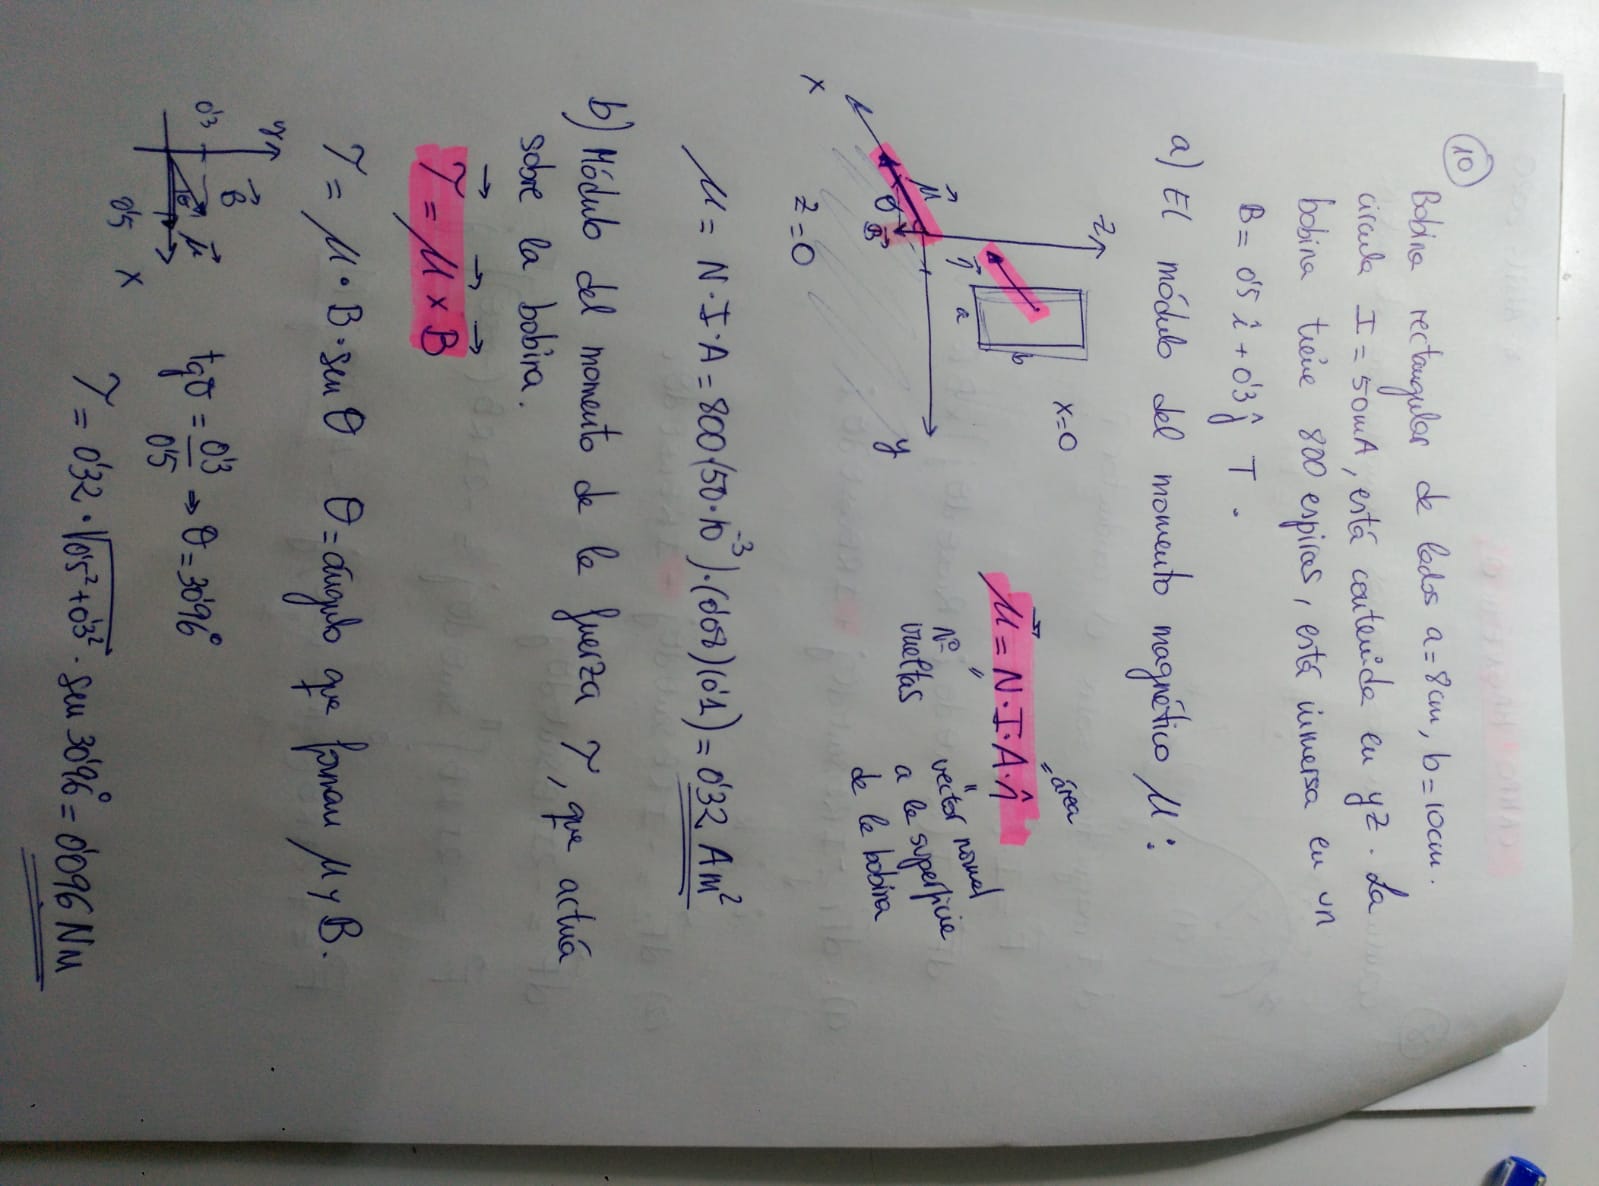 10
Bobina rectangular de lados a=8cm, b=10cm.
circula I=50mA, está contenida en yz. La
bobina tiene 800 espiras, está inmersa en un
B= 0'5 î + 0'3 ĵ T.
a) El módulo del momento magnético μ:
z
x=0
n
a
b
μ
θ
B
y
x
z=0
μ = N·I·A·n̂
área
Nº
vueltas
vector normal
a la superficie
de la bobina
μ = N·I·A = 800(50·10⁻³)·(0'08)(0'1) = 0'32 Am²
b) Módulo del momento de la fuerza τ, que actúa
sobre la bobina.
τ = μ × B
τ = μ·B·sen θ θ=ángulo que forman μ y B.
y
0'3
B
θ
μ
0'5
x
tgθ = 0'3/0'5 ⇒ θ = 30'96°
τ = 0'32 · √0'5²+0'3² · sen 30'96° = 0'096 Nm